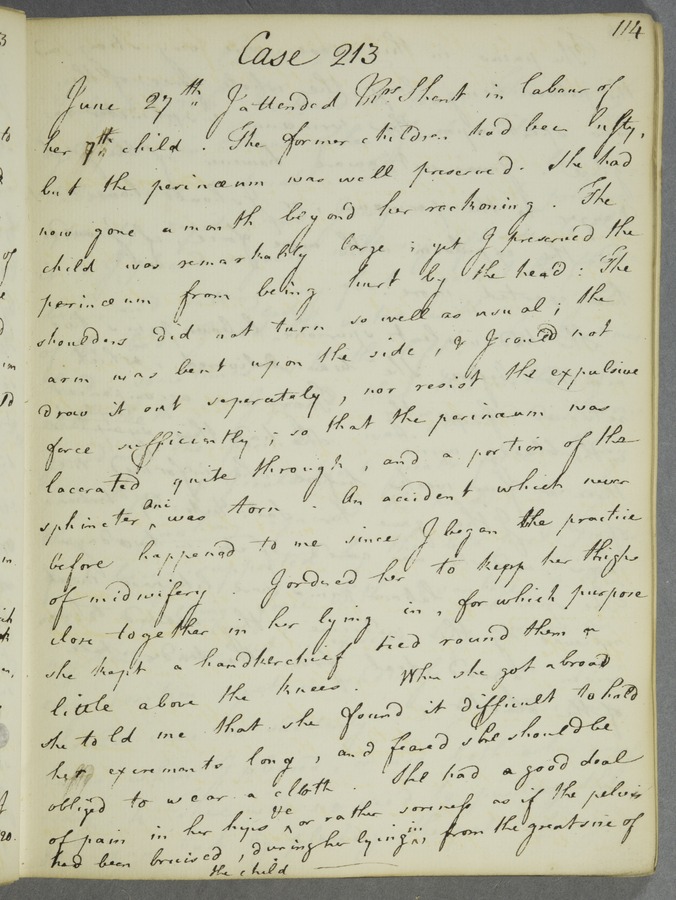 114
Case 213
June 27th I attended Mrs. Shent in labour of
her 7th child. The former children had been lusty,
but the perinæum was well preserved. She had
now gone a month beyond her reckoning. The
child was remarkably large; yet I preserved the
perinæum from being hurt by the head: The
shoulders did not turn so well as usual; the
arm was bent upon the side, & I could not
draw it out seperately, nor resist the expulsive
force sufficiently; so that the perinæum was
lacerated quite through, and a portion of the
sphincter ani was torn. An accident which never
before happened to me since I began the practice
of midwifery. I ordered her to keep her thighs
close together in her lying in, for which purpose
she kept a handkerchief tied round them a
little above the knees. When she got abroad
she told me that she found it difficult to hold
her excrements long, and feared she should be
obliged to wear a cloth. She had a good deal
of pain in her hips &c or rather soreness as if the pelvis
had been bruised, during her lying in, from the great size of
the child